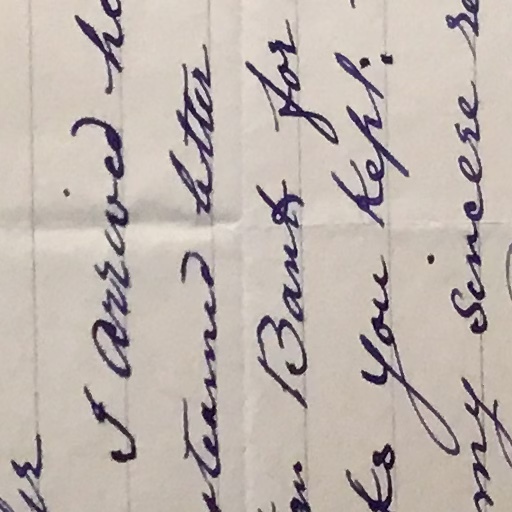 I arrived
esteamed letter
Bank for
ks you kept;
my sincere